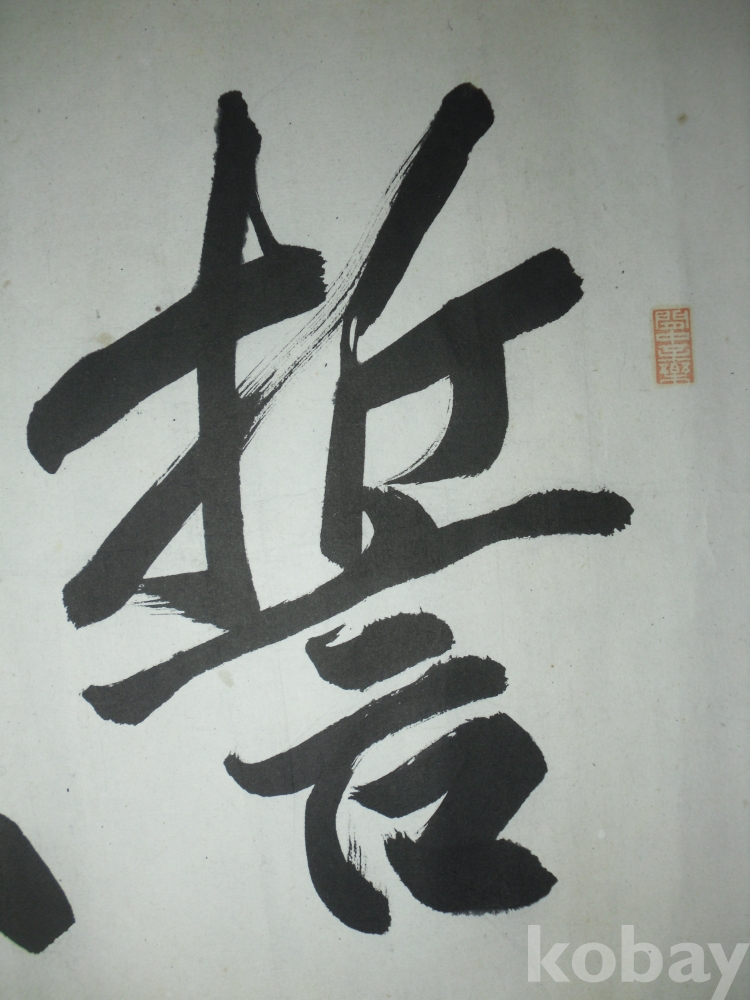 誓
kobay